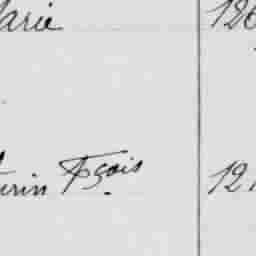 arie 126
urin Fçois 121